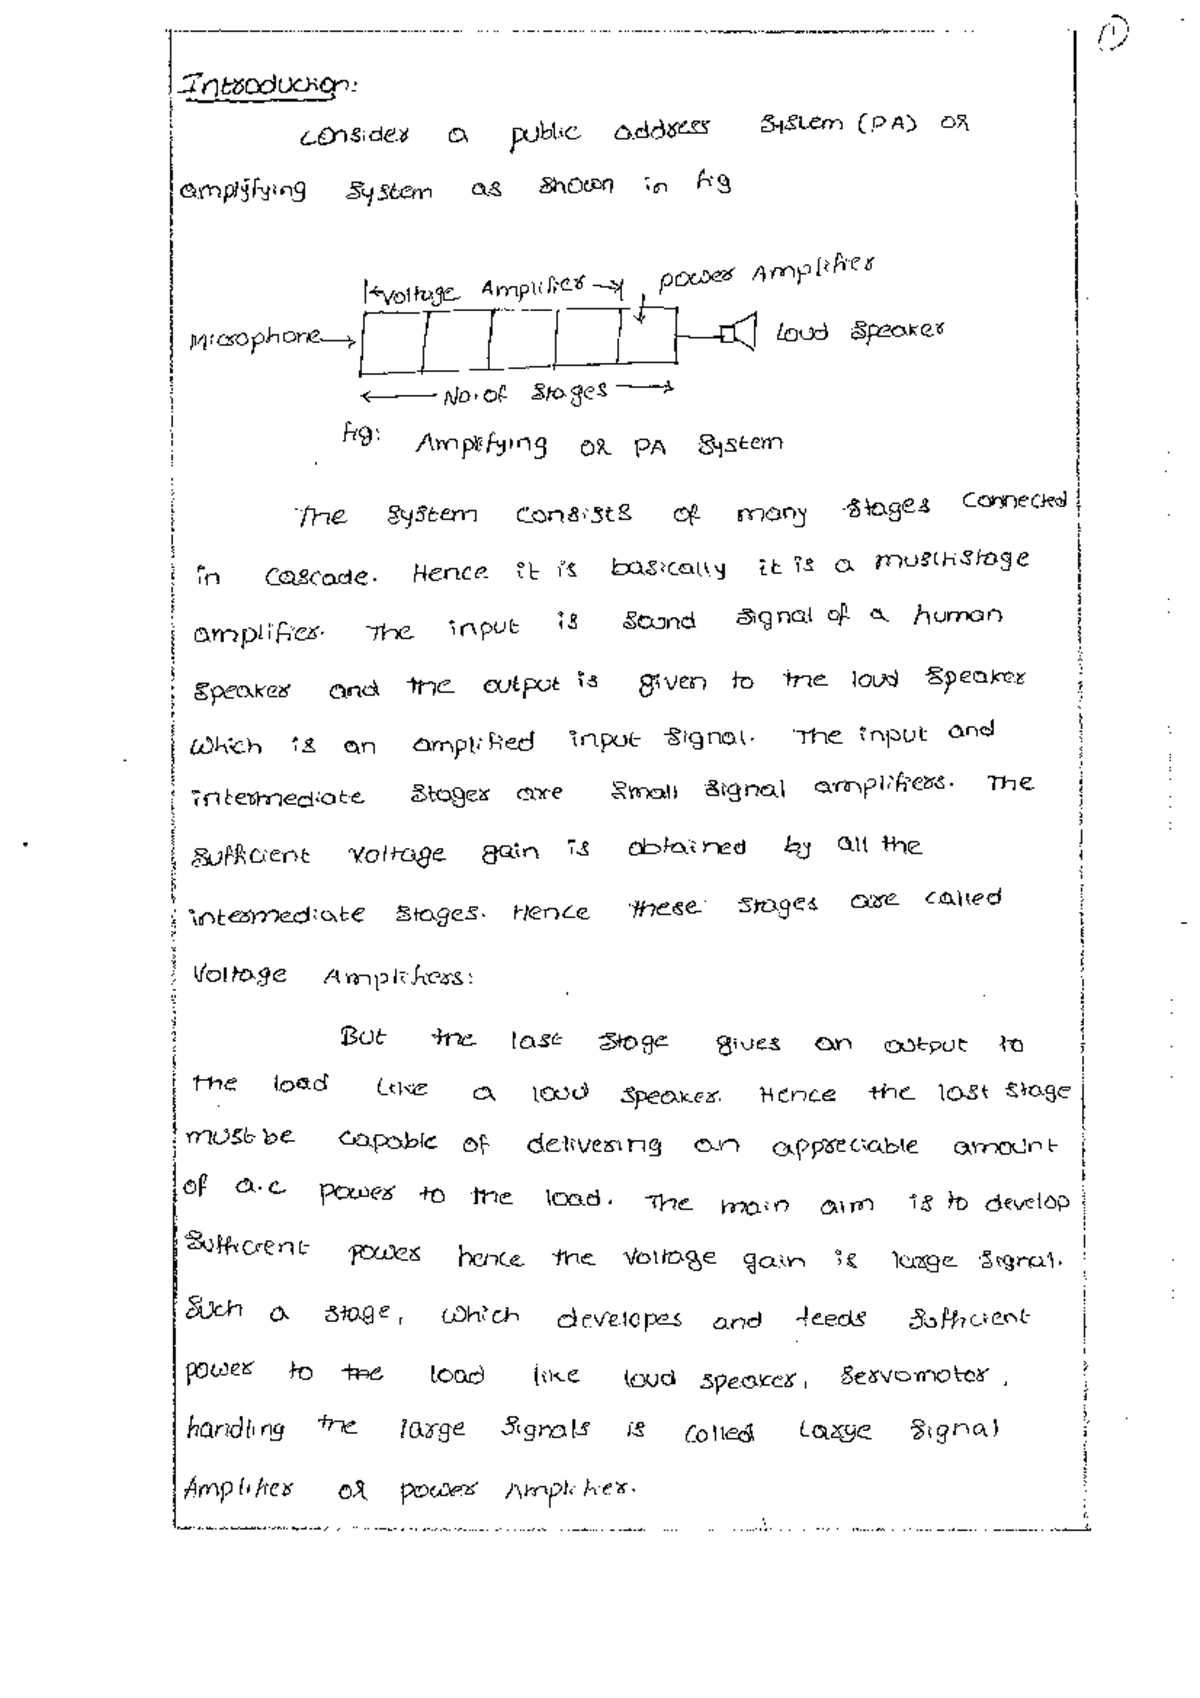 1
Introduction:
Consider a public address system (PA) OR
amplifying system as shown in fig
Voltage Amplifier
power Amplifier
Microphone
Loud Speaker
No. of Stages
fig: Amplifying OR PA System
The system consists of many stages connected
in cascade. Hence it is basically it is a multistage
amplifier. The input is sound signal of a human
speaker and the output is given to the loud speaker
which is an amplified input signal. The input and
intermediate stages are small signal amplifiers. The
sufficient voltage gain is obtained by all the
intermediate stages. Hence these stages are called
Voltage Amplifiers:
But the last stage gives an output to
the load like a loud speaker. Hence the last stage
must be capable of delivering an appreciable amount
of a.c power to the load. The main aim is to develop
sufficient power hence the voltage gain is large signal.
Such a stage, which developes and feeds sufficient
power to the load like loud speaker, servomotor,
handling the large signals is called Large Signal
Amplifier OR power Amplifier.